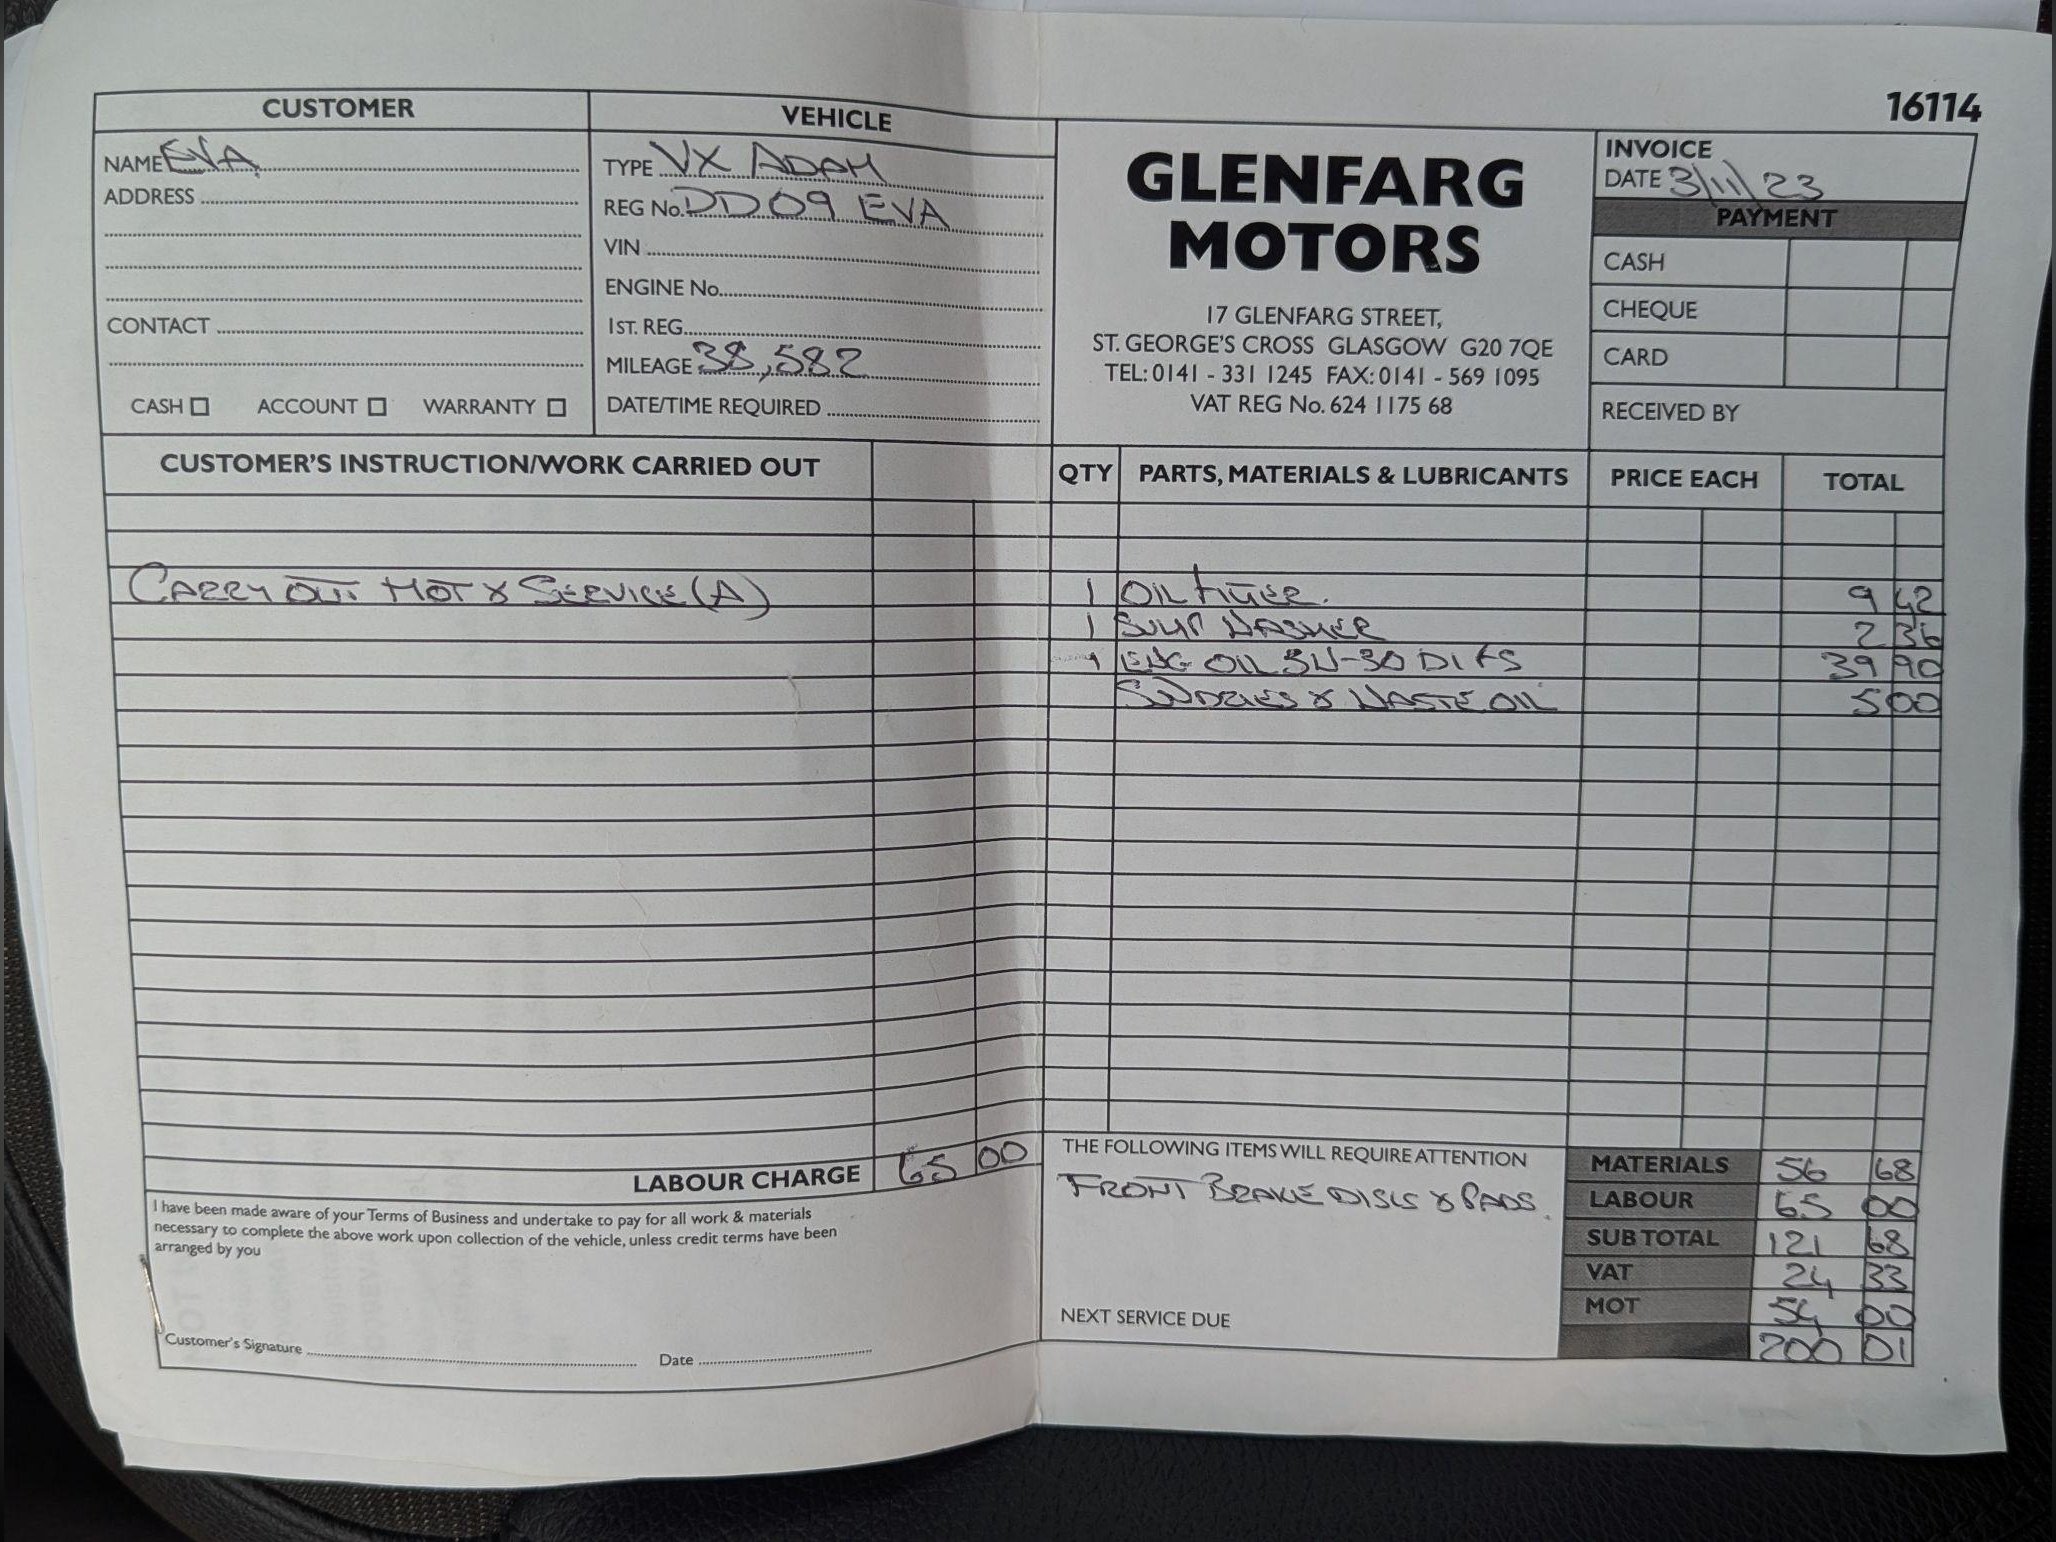 16114
CUSTOMER
NAME EVA
ADDRESS
CONTACT
CASH ACCOUNT WARRANTY
VEHICLE
TYPE VX ADAM
REG No. DD09 EVA
VIN
ENGINE No.
1ST. REG.
MILEAGE 38,582
DATE/TIME REQUIRED
GLENFARG
MOTORS
17 GLENFARG STREET,
ST. GEORGE'S CROSS GLASGOW G20 7QE
TEL: 0141 - 331 1245 FAX: 0141 - 569 1095
VAT REG No. 624 1175 68
INVOICE
DATE 3/11/23
PAYMENT
CASH
CHEQUE
CARD
RECEIVED BY
CUSTOMER'S INSTRUCTION/WORK CARRIED OUT
CARRY OUT MOT & SERVICE (A)
LABOUR CHARGE 65 00
I have been made aware of your Terms of Business and undertake to pay for all work & materials
necessary to complete the above work upon collection of the vehicle, unless credit terms have been
arranged by you
Customer's Signature Date
QTY PARTS, MATERIALS & LUBRICANTS PRICE EACH TOTAL
1 OIL FILTER. 9 42
1 SUMP WASHER 2 36
ENG OIL 5W-30 D1 39 90
SUNDRIES & WASTE OIL 5 00
THE FOLLOWING ITEMS WILL REQUIRE ATTENTION
FRONT BRAKE DISCS & PADS.
NEXT SERVICE DUE
MATERIALS 56 68
LABOUR 65 00
SUB TOTAL 121 68
VAT 24 33
MOT 54 00
200 01